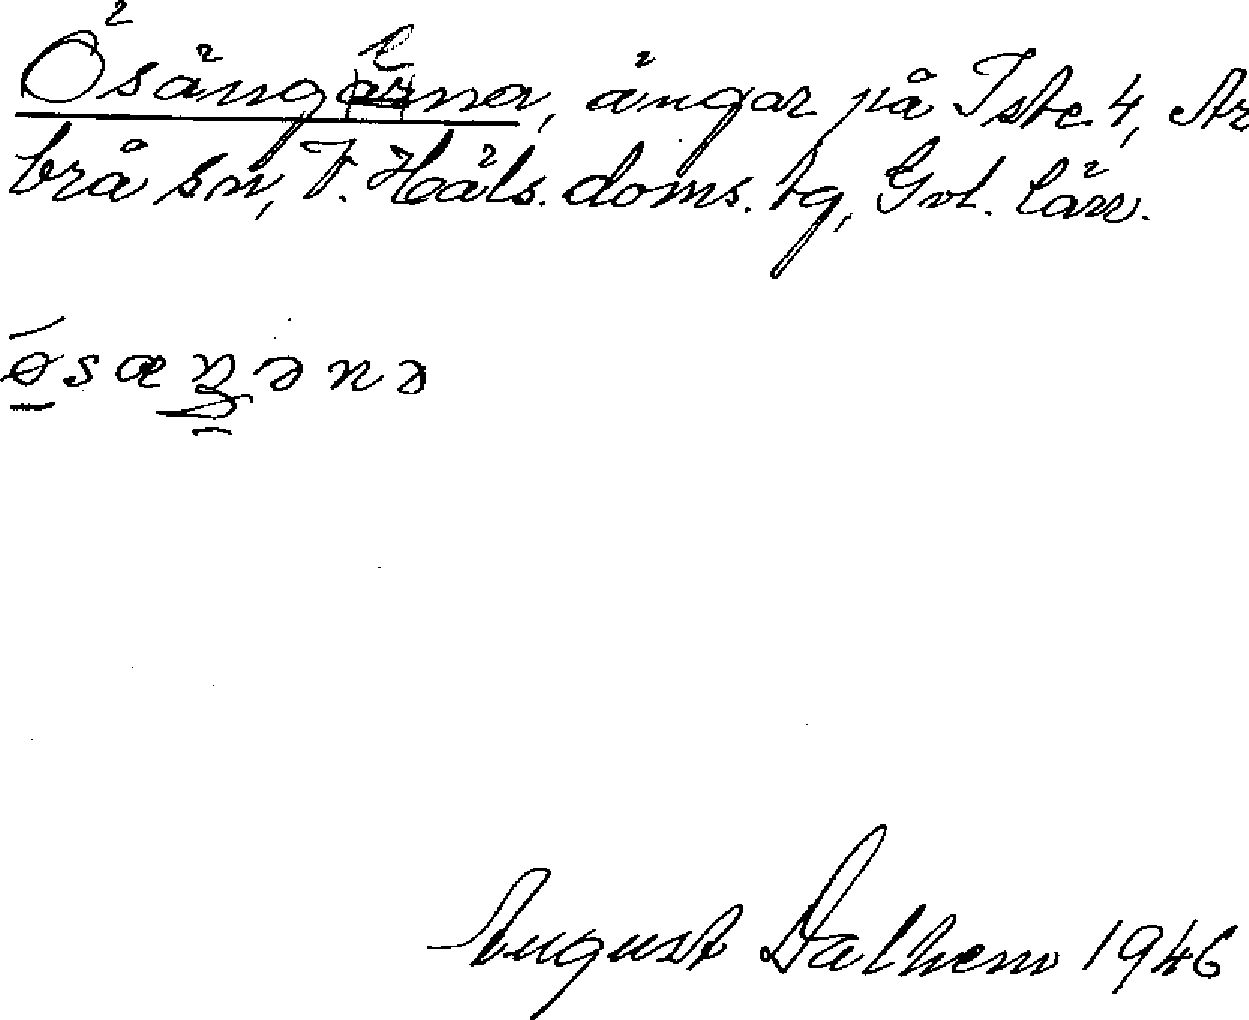 Ösängarna, ängar på Iste 4, Ar
brå sn, V. Häls. doms. tg, Gvl. län.
ǿsæŋənə
August Dalhem 1946